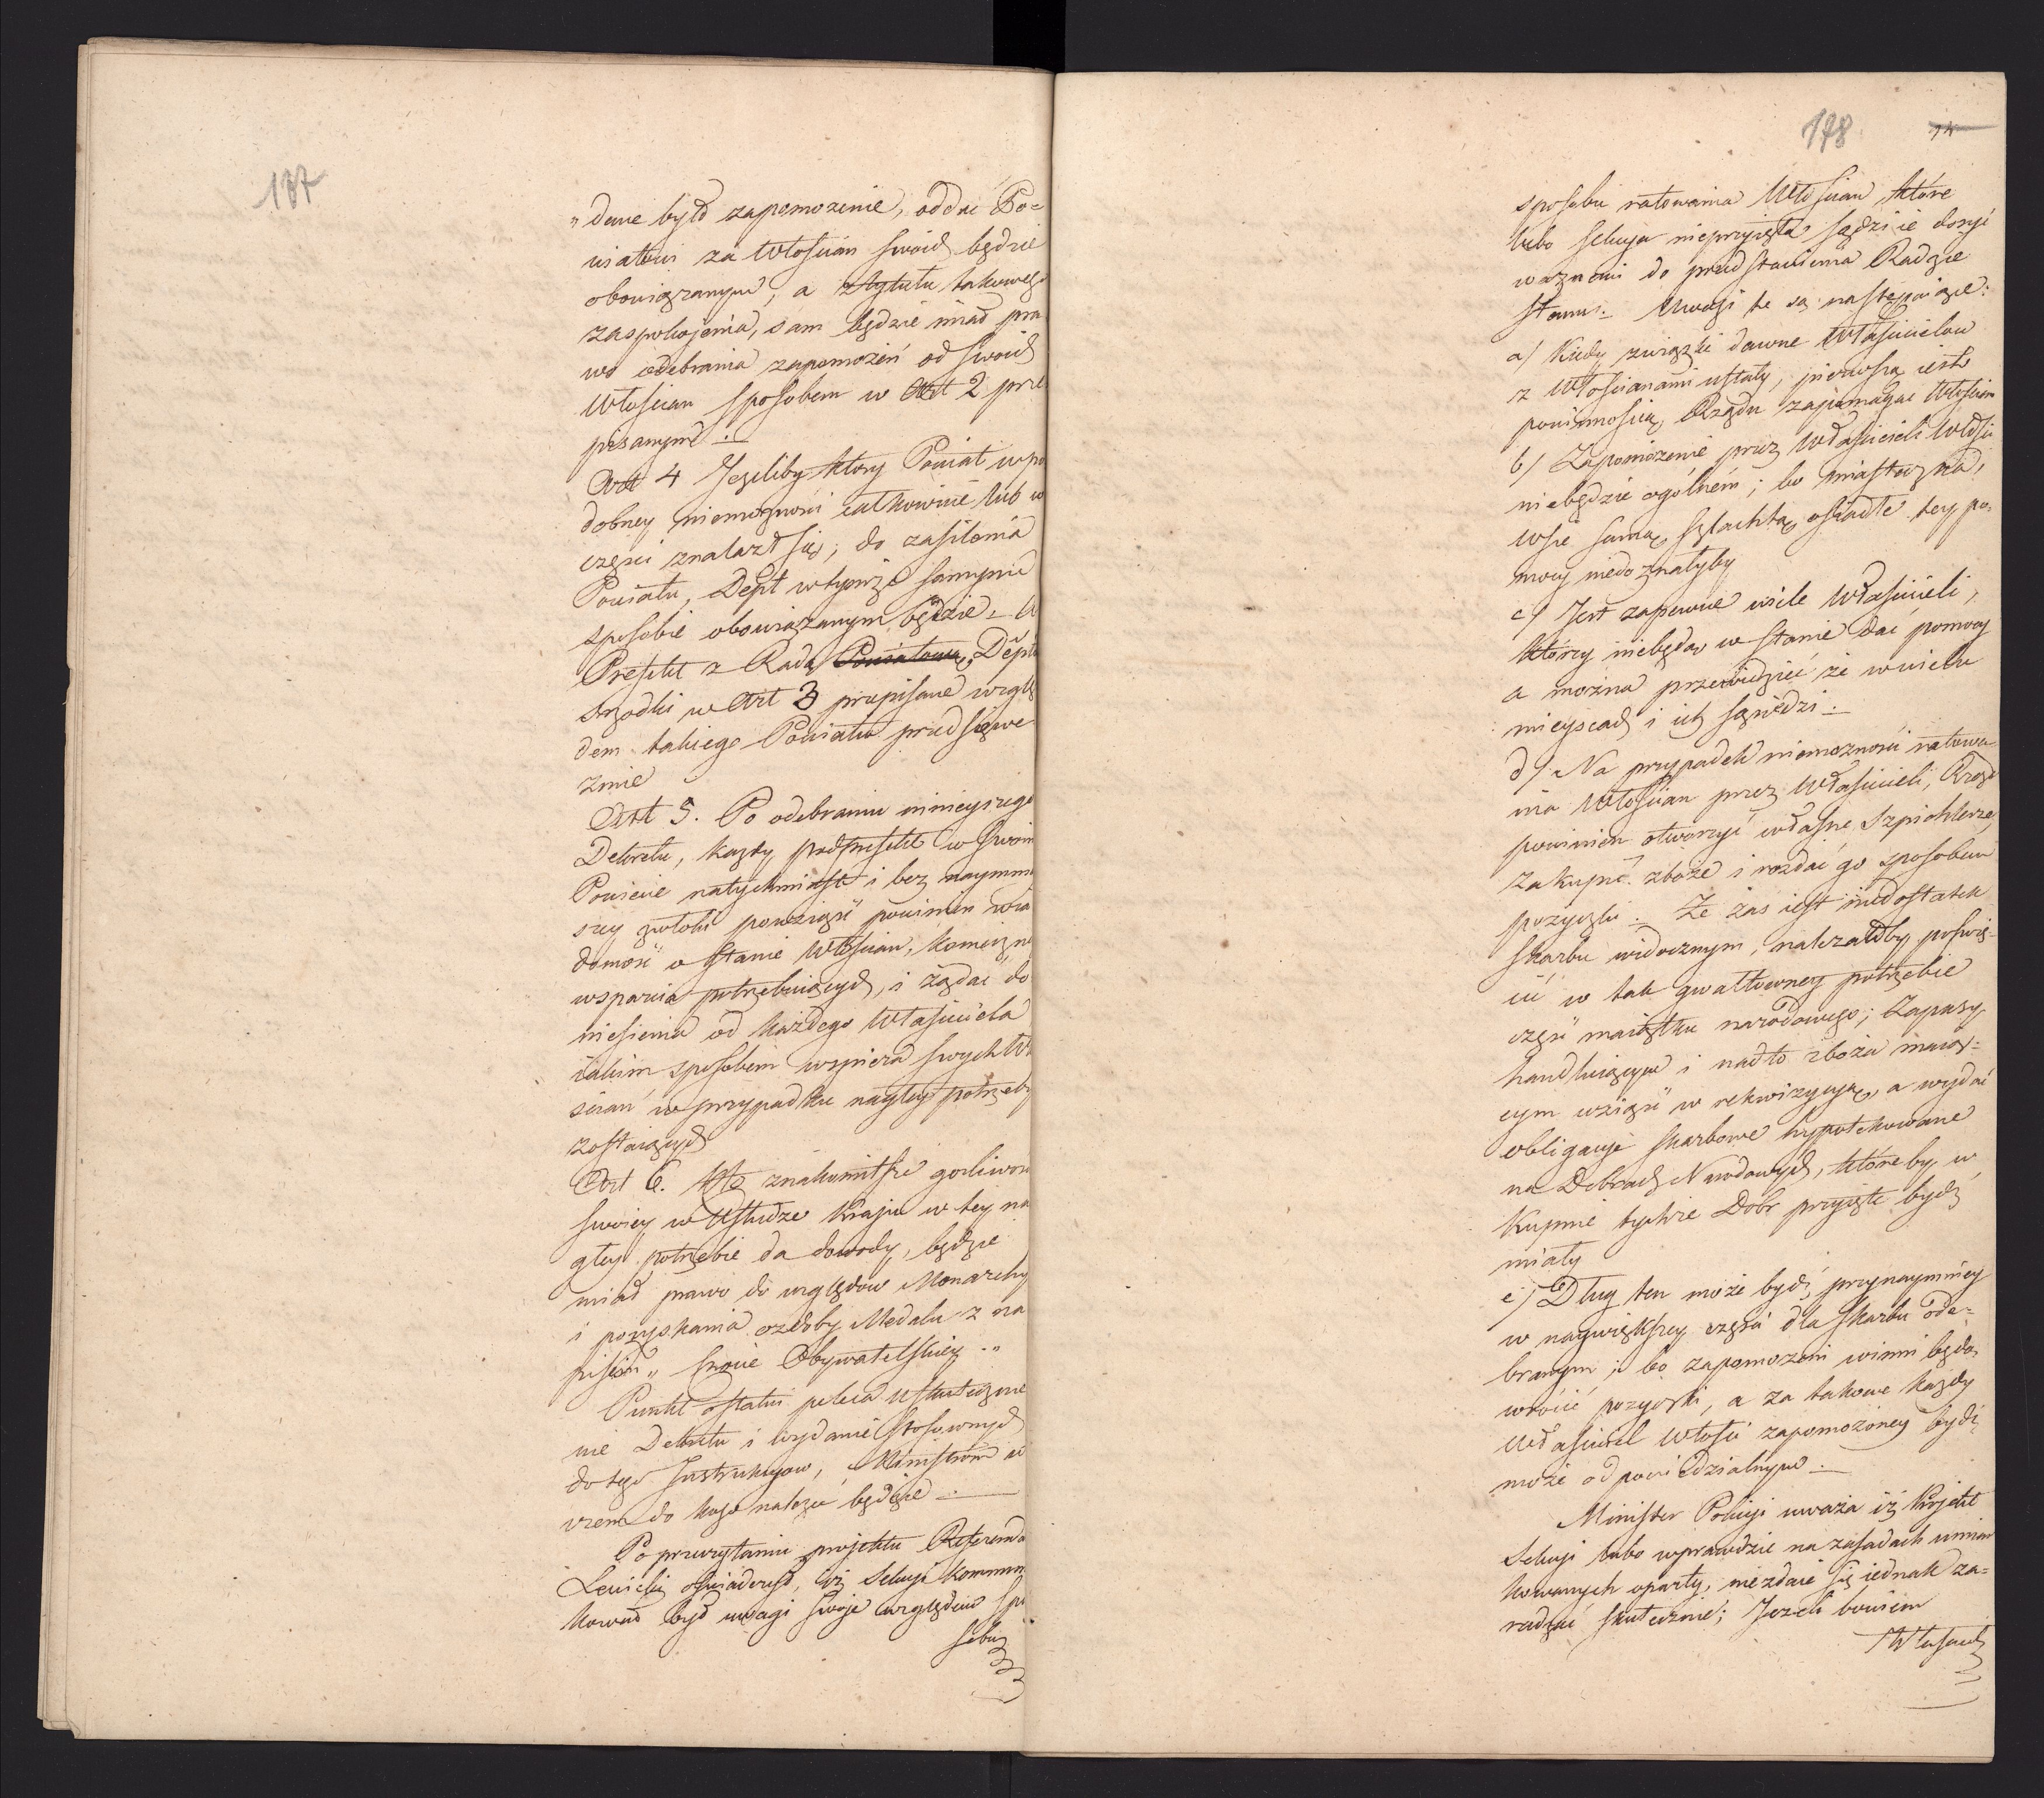 187
„dane było zapomożenie, oddać Po=
wiatowi za Włoscian swoich będzie
obowiązanym, a z tytułu takowego
zaspokojenia, sam będzie miał pra
wo odebrania zapomożeń od swoich
Włoscian sposobem w Art 2 prze
pisanym.—
Art 4 Jeżeliby który Powiat w po
dobney niemożności całkowicie lub w
części znalazł się, do zasilenia
Powiatu, Dept w tymże samym
sposobie obowiązanym będzie – A
Prefekt z Radą Powiatową Depta
srzodki w Art 3 przepisane wzglę
dem takiego Powiatu przedsięwe
zmie
Art 5. Po odebraniu ninieyszego
Dekretu, każdy podprefekt w swoim
Powiecie natychmiast i bez naymniey
szey zwłoki powziąść powinien wia
domość o stanie Włoscian, koniecznie
wsparcia potrzebuiących, i żądać do
niesienia od każdego Właściciela
iakim sposobem wspiera swych Wło
scian w przypadku nagłey potrzeby
zostaiących
Art 6. Kto znakomitsze gorliwości
swoiey w usłudze kraju w tey na
głey potrzebie da dowody, będzie
miał prawo do względów Monarchy
i pozyskania ozdoby Medalu z na
pisem „ Cnocie Obywatelskiey „
Punkt ostatni poleca uskutecznie
nie Dekretu i wydanie stosownych
do tego Instrukcyow, Ministrom w
czem do kogo należeć będzie.—
Po przeczytaniu projektu Referendarz
Lewicki oświadczył, iż Sekcja kommuni
kował był uwagi swoje względem spo
sobu
178
14
sposobu ratowania Włoscian, które
lubo Sekcja nieprzyięła, sądzi ie dosyć
ważnemi do przedstawienia Radzie
Stanu.– Uwagi te są następuiące:
a) Kiedy związki dawne Właścicielow
z Włościanami ustały, pierwszą iest
powinnością, Rządu zapomagać Włościan
b) Zapomożenie przez Właścicieli Włości
niebędzie ogólném; bo miasteczka,
wsie samą szlachtą osiadłe tey po=
mocy niedoznałyby
c) Jest zapewne wiele Właścicieli,
którzy niebędą w stanie dać pomocy
a można przewidzieć że w wielu
mieyscach i ich sąsiedzi.–
d) Na przypadek niemożności ratowa=
nia Włościan przez Właścicieli, Rząd
powinien otworzyć własne Szpichlerze,
zakupić zboże i rozdać go sposobem
pożyczki.– Że zas iest niedostatek
Skarbu widocznym, należałoby poświę=
cić w tak gwałtowney potrzebie
część maiątku narodowego; Zapasy
handluiącym i nadto zboża maią=
cym wziąść w rekwizycyą, a wydać
obligacye skarbowe hypotekowane
na Dobrach Narodowych, któreby w
kupnie tychże Dobr przyięte bydź
miały
e) Dług ten może bydź przynaymniey
w naywiększey części dla skarbu ode=
branym; bo zapomożeni winni będą
wrócić pożyczki, a za takowe każdy
Właściciel Włości zapomożoney bydź
może odpowiedzialnym.–
Minister Policyi uważa iż Projekt
Sekcyi lubo wprawdzie na zasadach umiar
kowanych oparty, niezdaie się iednak za=
radzać skutecznie; Jeżeli bowiem